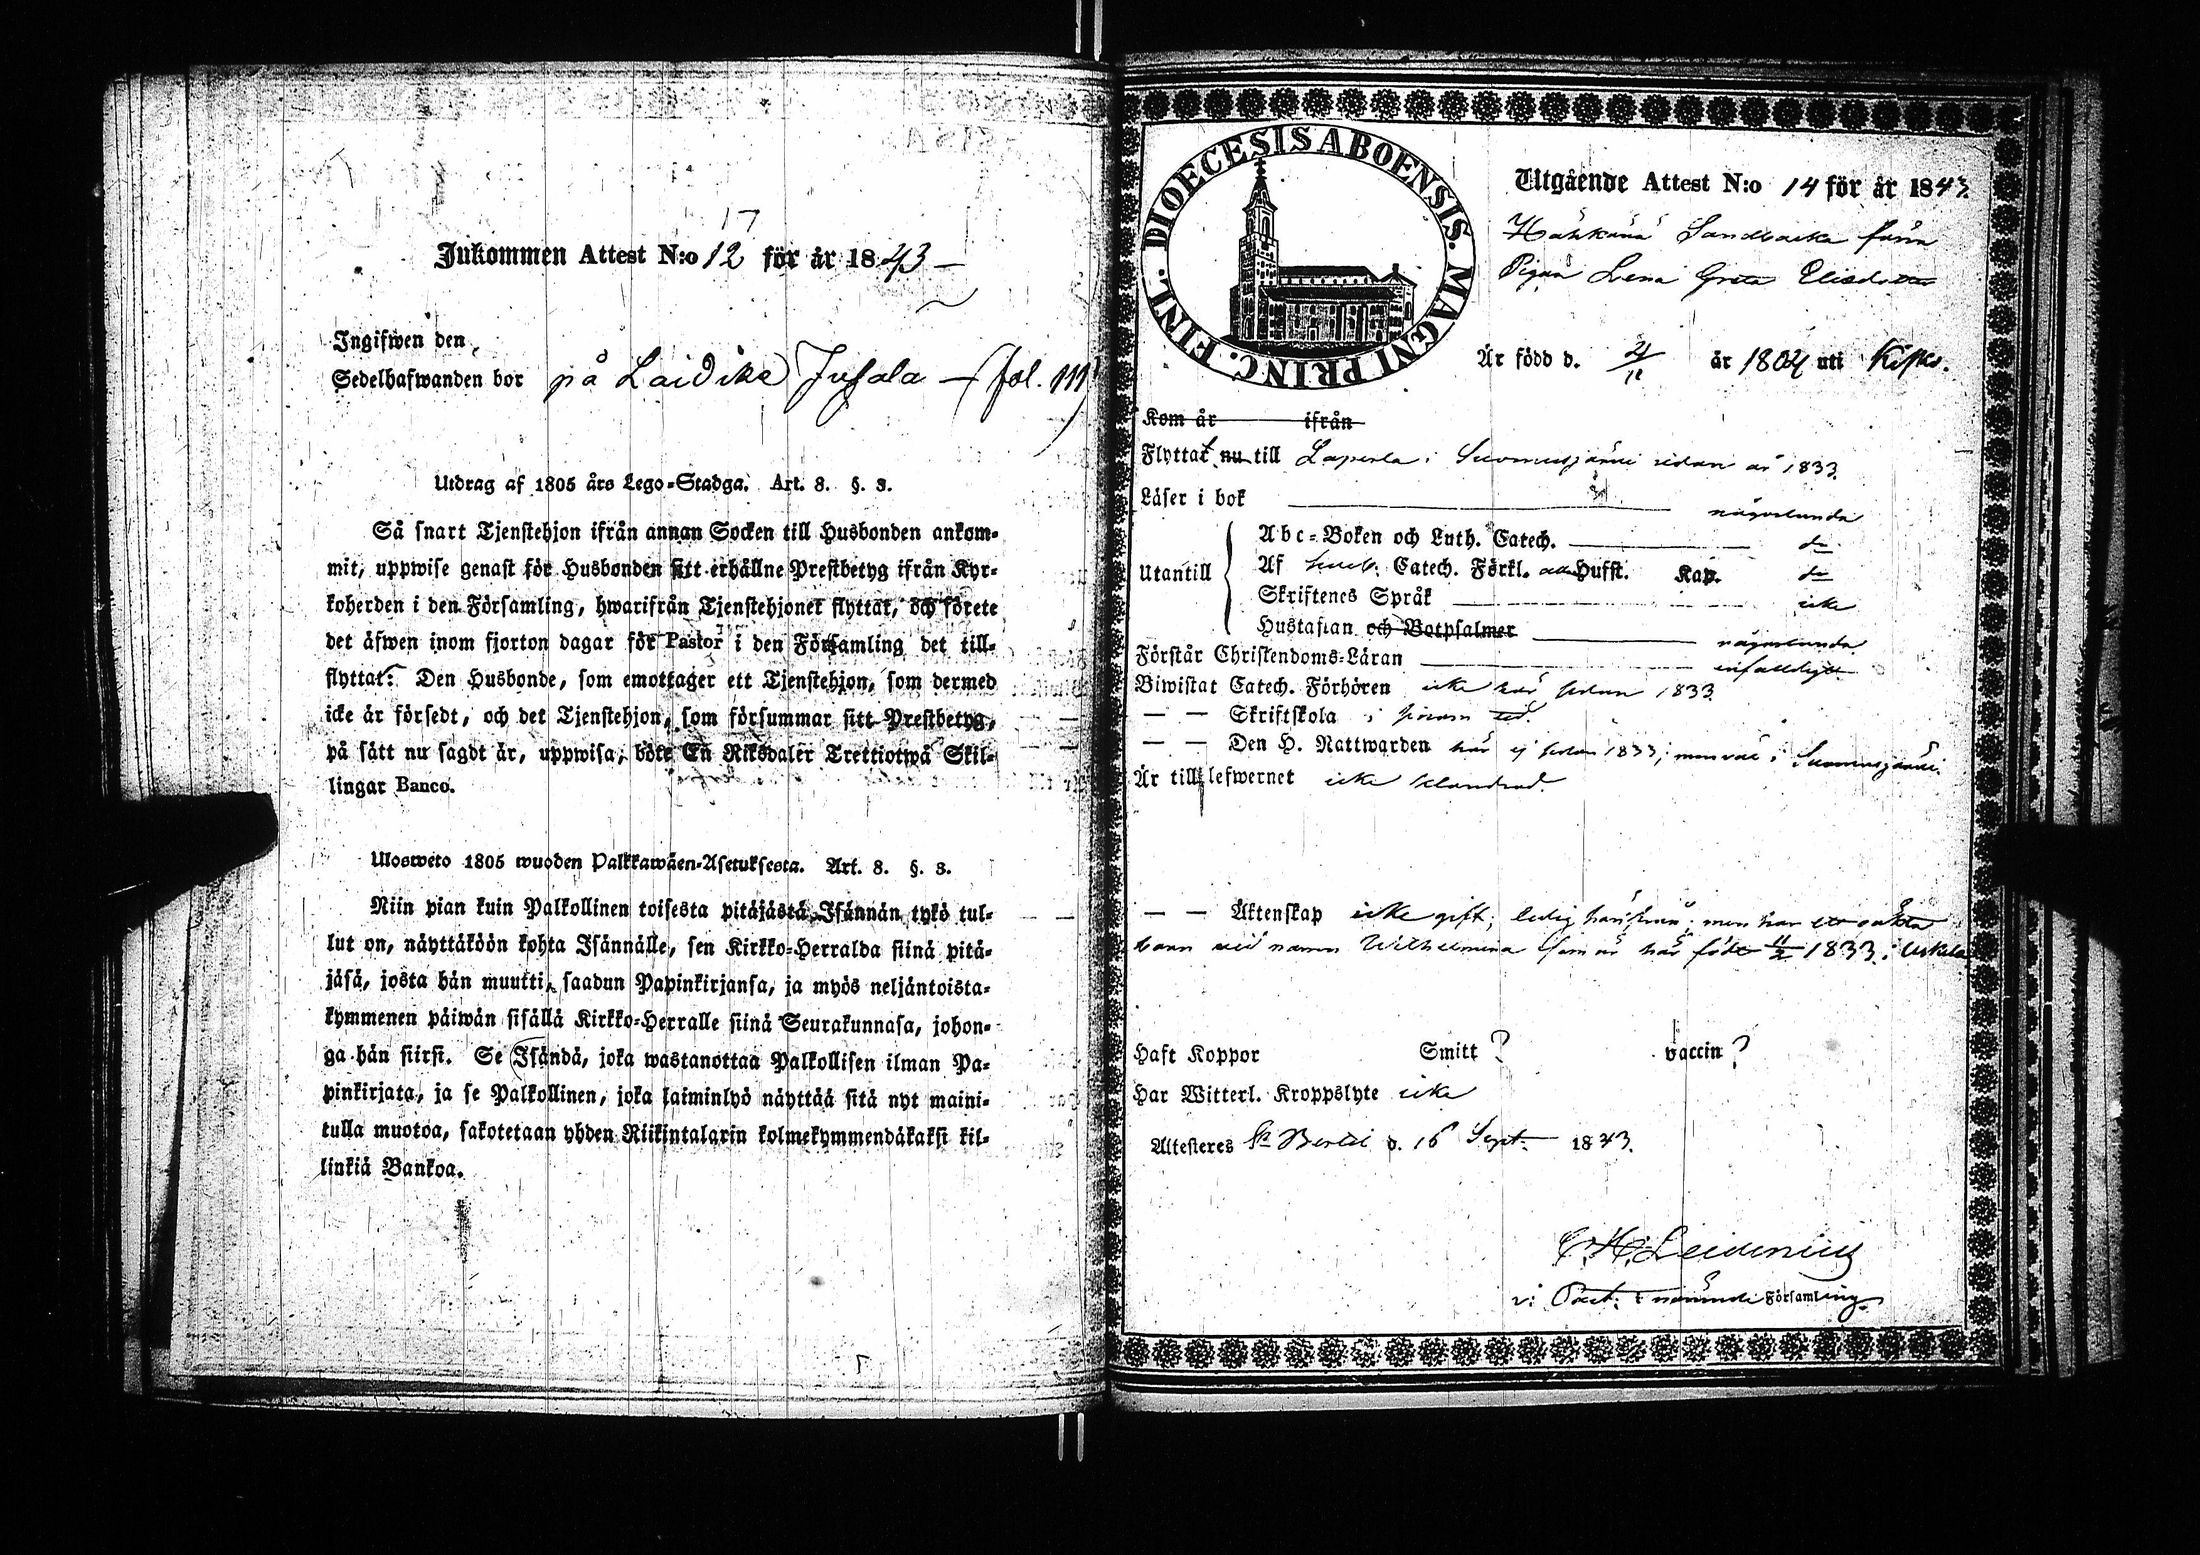 17
Inkommen Attest N:o 12 för år 1843 —
Ingifwen den
Sedelhafwanden bor på Laidike Juhala — fol. 111
Utdrag af 1805 års Lego-Stadga. Art. 8. §. 3.
Så snart Tjenstehjon ifrån annan Socken till Husbonden ankom-
mit, uppwise genast för Husbonden sitt erhållne Prestbetyg ifrån Kyr-
koherden i den Församling, hwarifrån Tjenstehjonet flyttat, och förete
det äfwen inom fjorton dagar för Pastor i den Församling det till-
flyttat. Den Husbonde, som emottager ett Tjenstehjon, som dermed
icke är försedt, och det Tjenstehjon, som försummar sitt Prestbetyg,
på sätt nu sagdt är, uppwisa, böte En Riksdaler Trettiotwå Skil-
lingar Banco.
Ulosweto 1805 wuoden Palkkawäen-Asetuksesta. Art. 8. §. 3.
Niin pian kuin Palkollinen toisesta pitäjästä Isännän tykö tul-
lut on, näyttäköön kohta Isännälle, sen Kirkko-Herralda siinä pitä-
jäsä, josta hän muutti, saadun Papinkirjansa, ja myös neljäntoista-
kymmenen päiwän sisällä Kirkko-Herralle siinä Seurakunnasa, johon-
ga hän siirsi. Se Isändä, joka wastanottaa Palkollisen ilman Pa-
pinkirjata, ja se Palkollinen, joka laiminlyö näyttää sitä nyt maini-
tulla muotoa, sakotetaan yhden Riikintalarin kolmekymmendäkaksi kil-
linkiä Bankoa.
DIOECESIS ABOENSIS. MAGNI PRINC. FINL.
Utgående Attest N:o 14 för år 1843.
Sandbacka
Pigan Lena Greta Elisdotter
Är född d. 4/11 år 1804 uti Kisko.
Kom år ifrån
Flyttat nu till Laperla i Suomusjärvi sedan år 1833.
Läser i bok någorlunda
Utantill
Abc-Boken och Luth. Catech. do
Af Catech. Förkl. Hufst. Kap. do
Skriftenes Språk icke
Hustaflan och Botpsalmer någorlunda
Förstår Christendoms-Läran enfaldigt
Biwistat Catech. Förhören icke här sedan 1833
— — Skriftskola i
— — Den H. Nattwarden här ej sedan 1833; men väl i Suomusjärvi.
Är till lefwernet icke klandrad.
— — Äktenskap icke gift; ledig härifrån; men har ett oäkta
barn vid namn Wilhelmina som är här född 11/2 1833 i Uskela
Haft Koppor Smitt ? vaccin ?
Har Witterl. Kroppslyte icke
Attesteres St Bertil d. 16 Sept. 1843.
C. H. Leidenius
v: Past: i nämnde Församling.